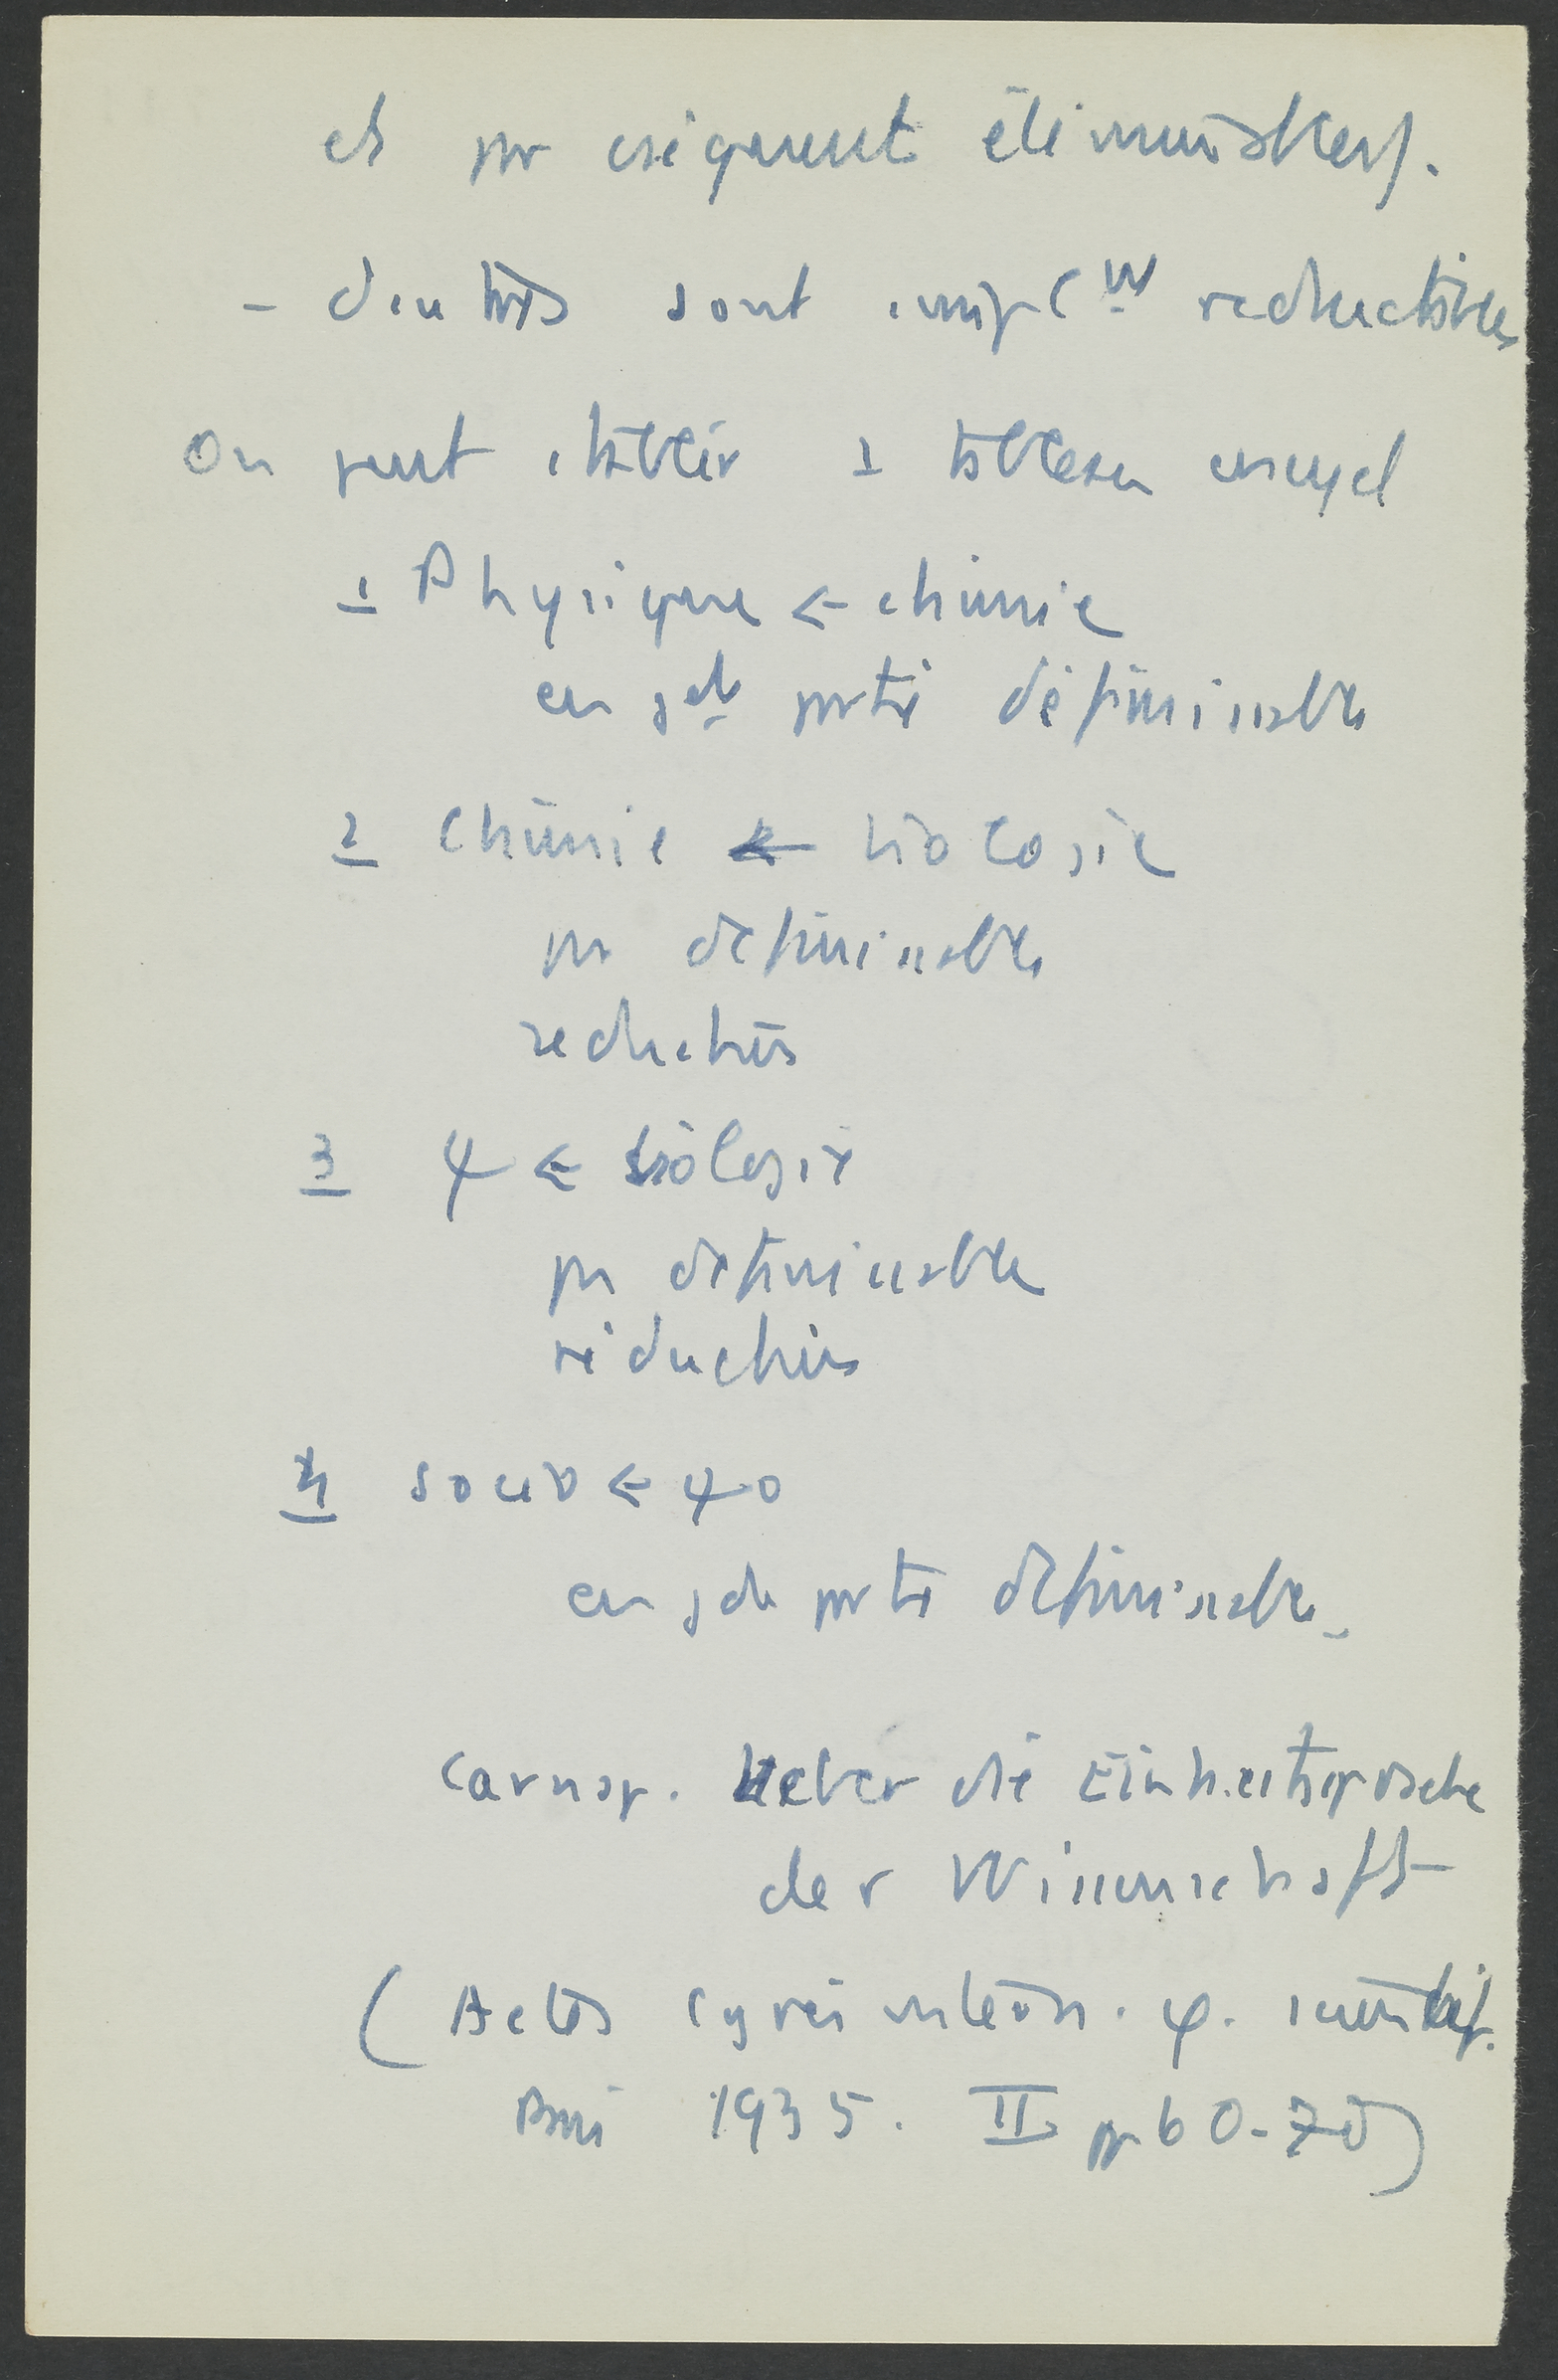 et par conséquent éliminables.
- d'autres sont simplemt reductibles
On peut établir 1 tableau encycl
1 Physique ← chimie
en gde partie définissable
2 Chimie ← biologie
pas definissable
reduction
3 ψ ← biologie
pas definissable
réduction
4 socio ← ψo
en gde partie définissable
Carnap. Ueber die Einheitsprache
der Wissenschaft
(Actes Cgrès intern. φ. scientif.
Paris 1935. II pp 60-70)